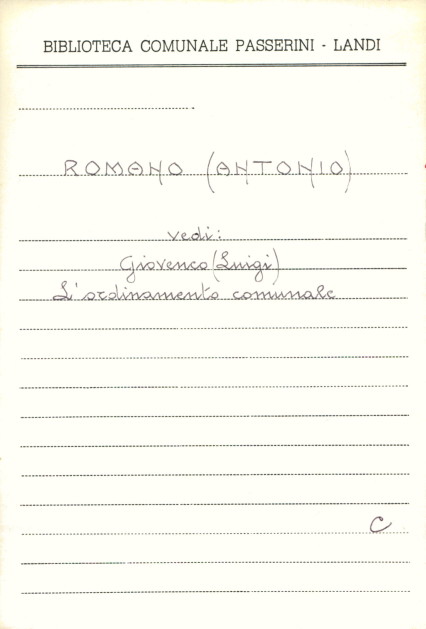 BIBLIOTECA COMUNALE PASSERINI - LANDI
ROMANO (ANTONIO)
vedi:
Giovenco (Luigi)
L'ordinamento comunale
C